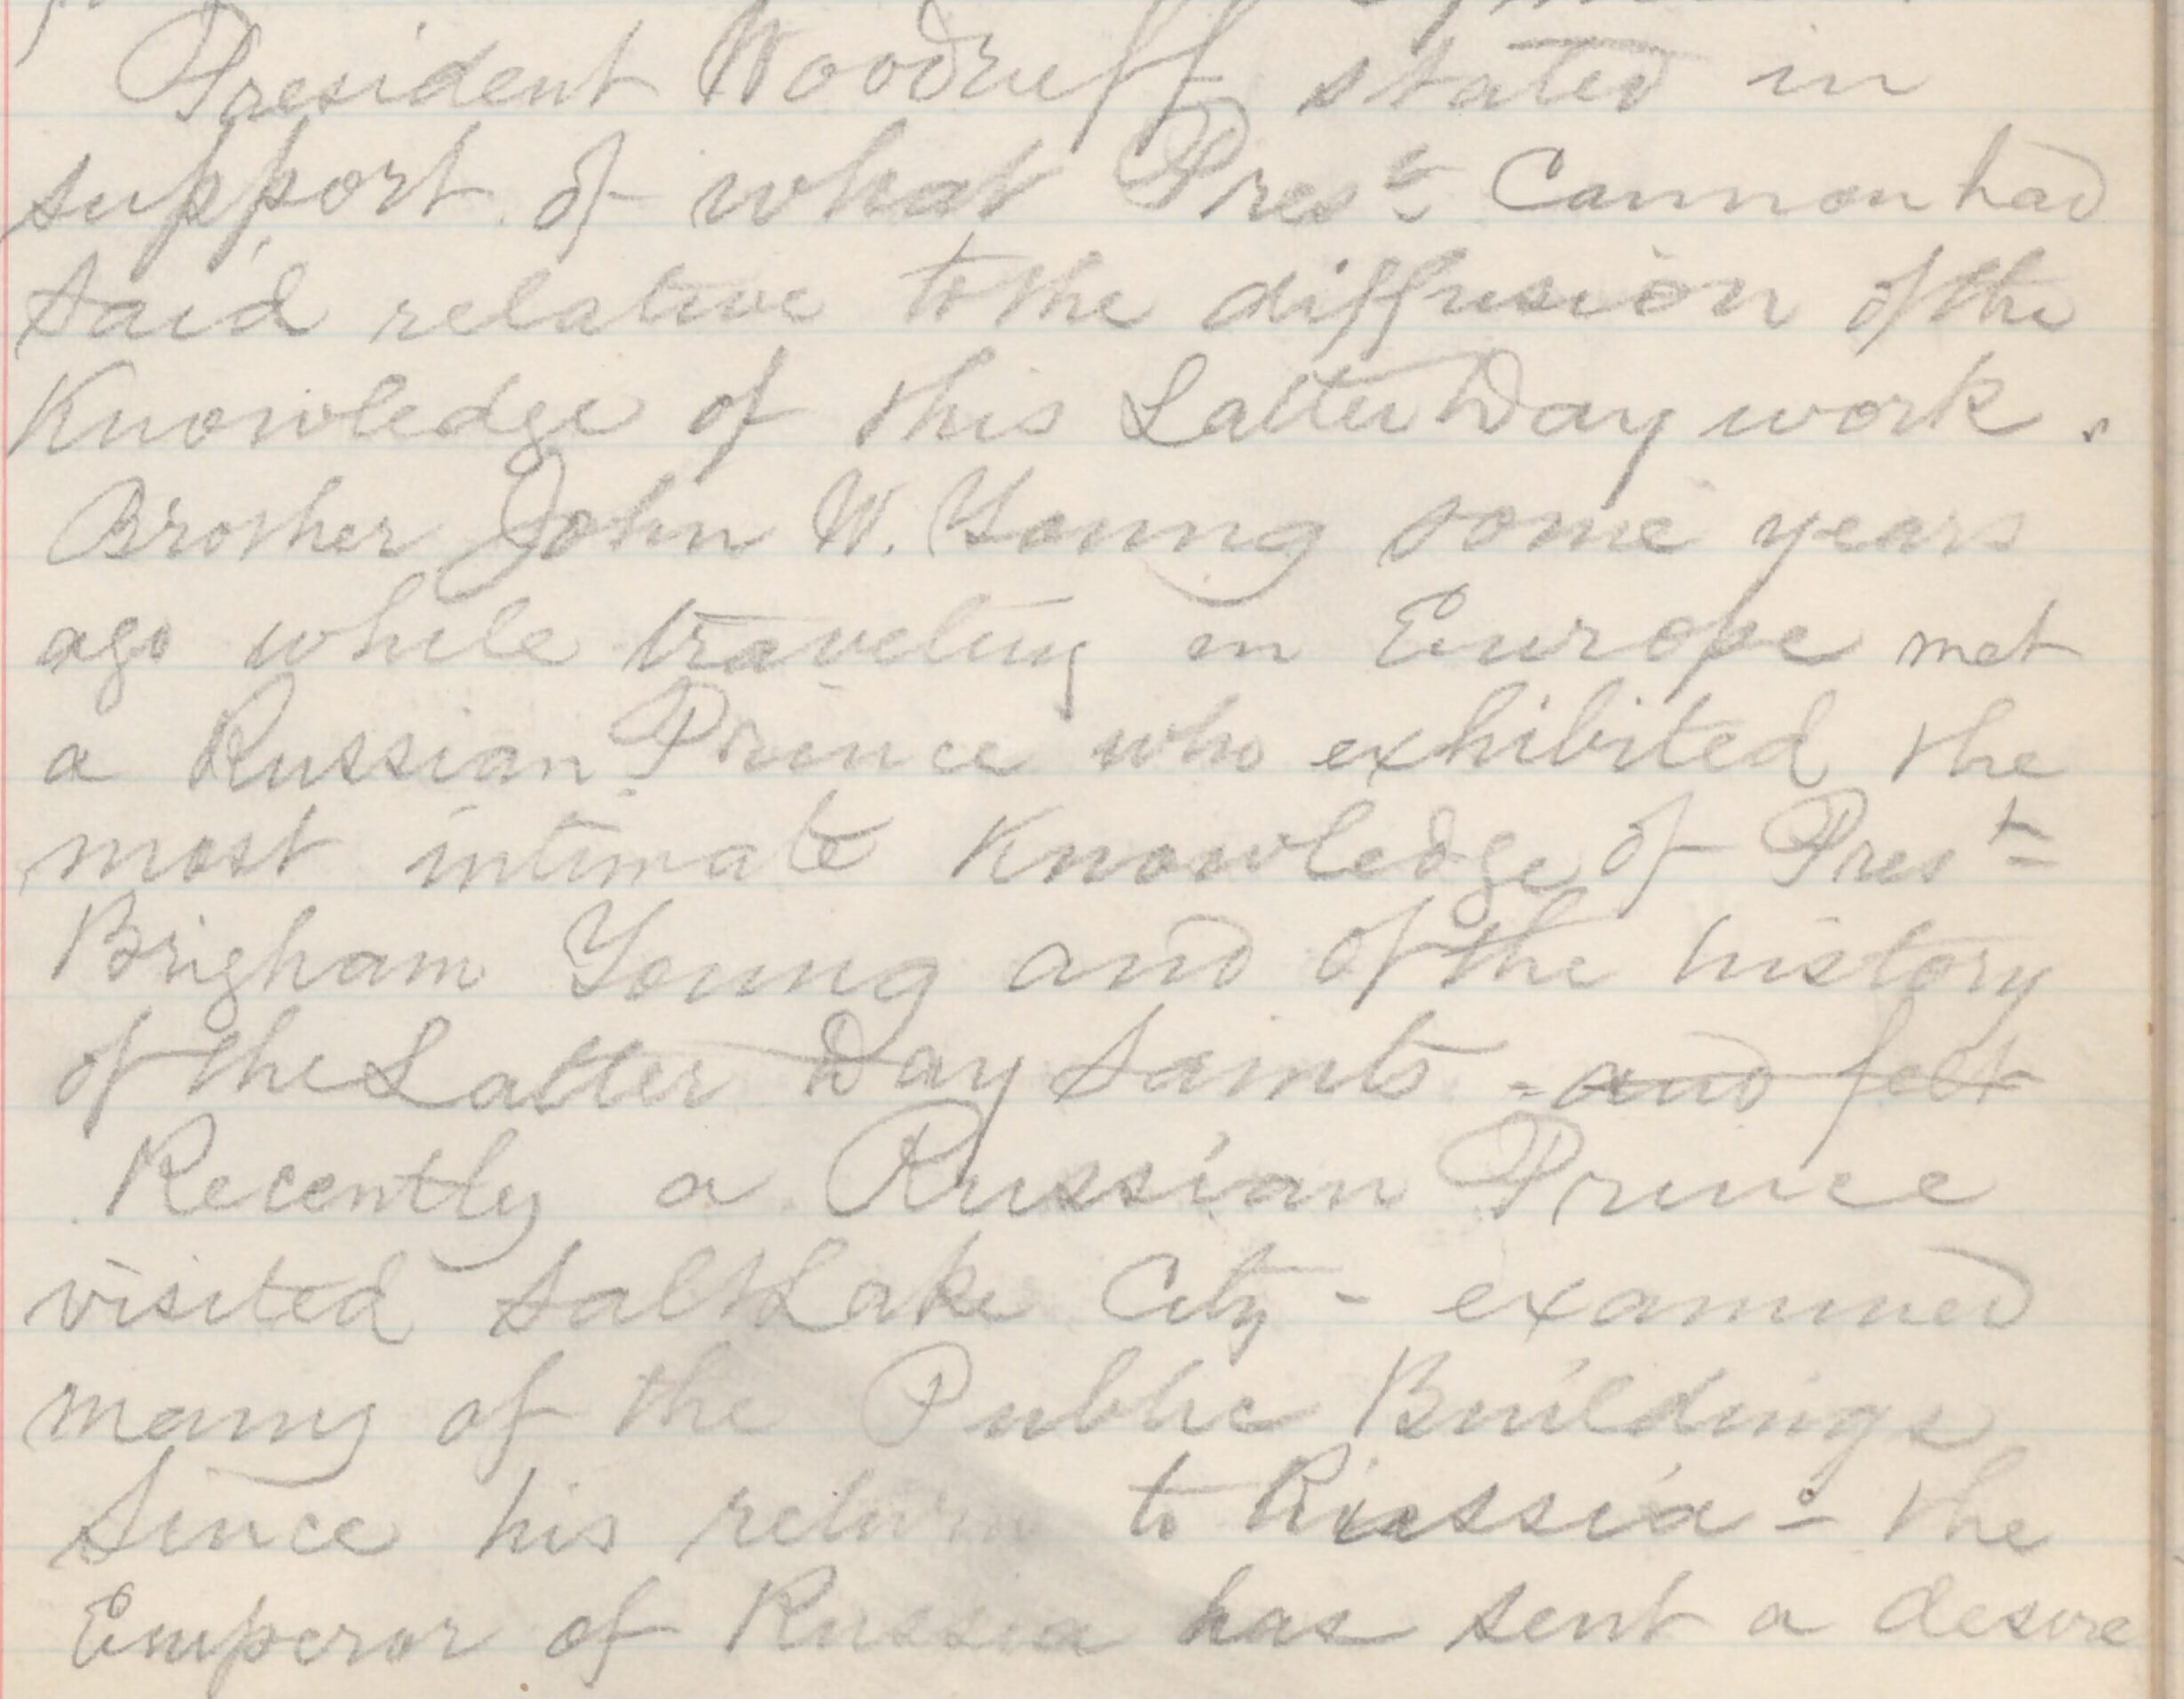 President Woodruff stated in
support of what Prest Cannon had
said relative to the diffusion of the
Knowledge of this Latter Day work.
Brother John W. Young some years
ago while traveling in Europe met
a Russian Prince who exhibited the
most intimate Knowledge of Prest
Brigham Young and of the history
of the Latter Day Saints - and felt
Recently a Russian Prince
visited Salt Lake City - examined
many of the Public Buildings
Since his return to Russia - the
Emperor of Russia has sent a desire